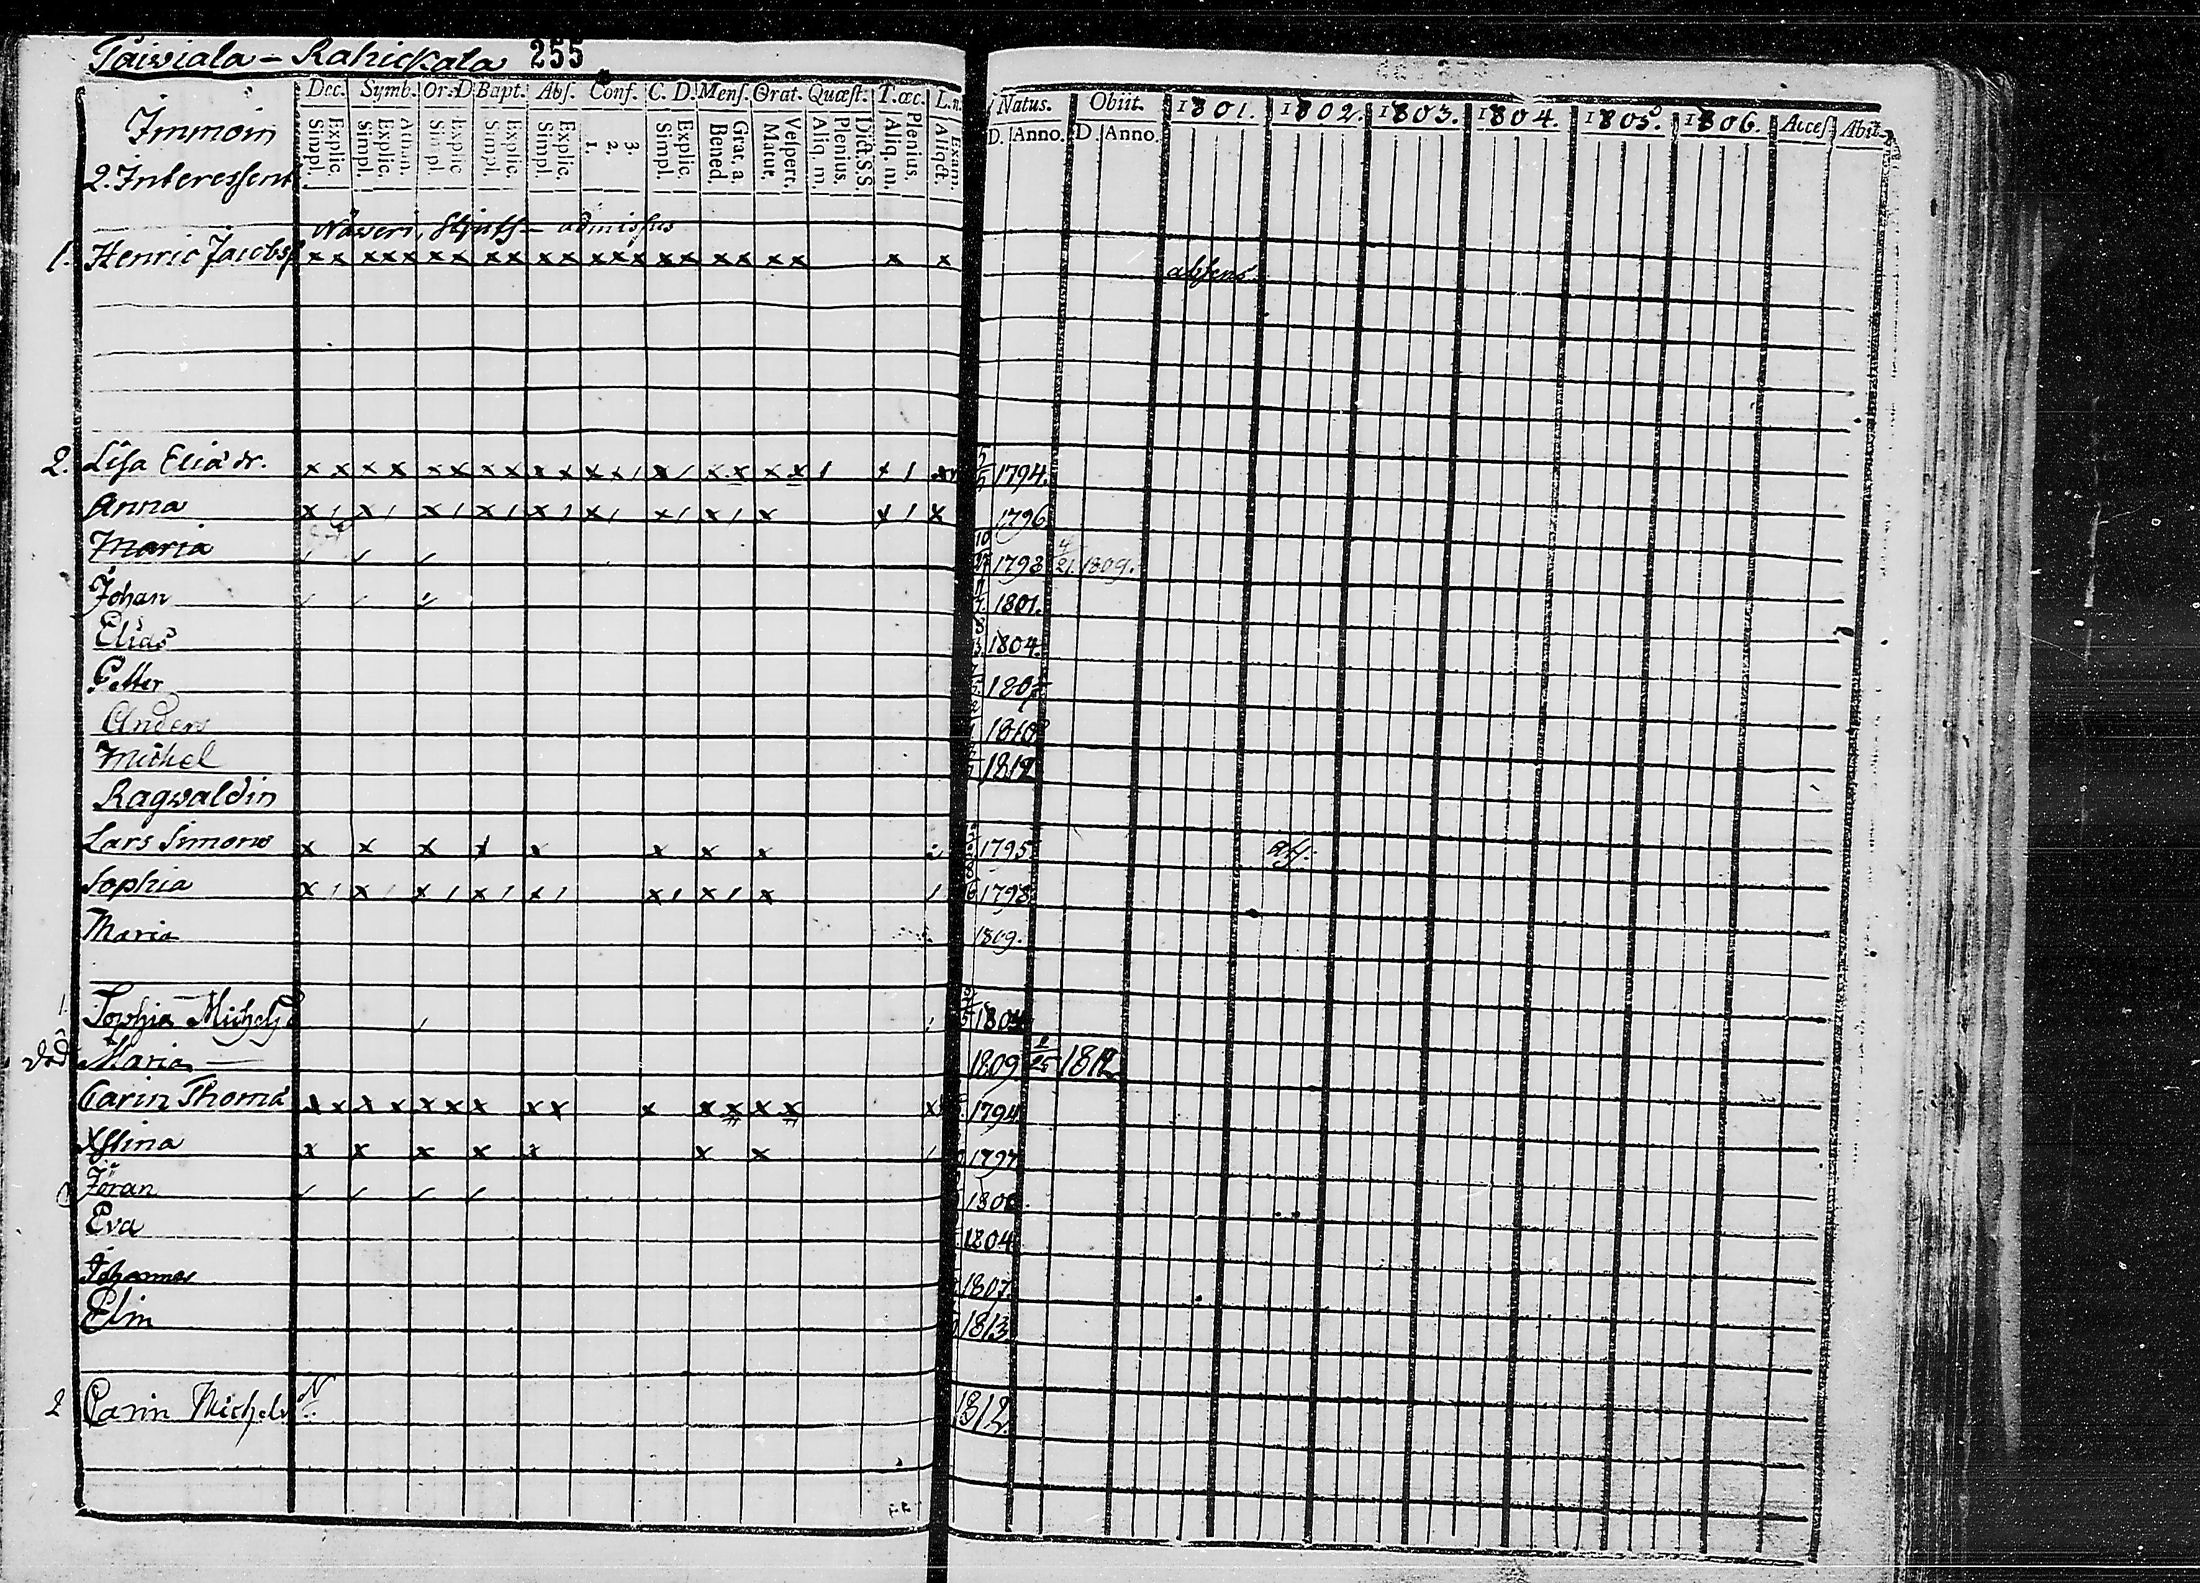 Päiviala - Rahickala 255
Dec. Symb. Or. D Bapt. Abs. Conf. C. D. Mens. Orat. Quæst. T. œc. L. n.
Natus. Obiit. 1801. 1802. 1803. 1804. 1805. 1806. Acces Abit.
Immoin
2. Interessent
Simpl. Explic. Simpl. Explic. Athan. Simpl. Explic. Simpl. Explic. Simpl. Explic. 1. 2. 3. Simpl. Explic. Bened. Grat. a. Matut. Vespert. Aliq. m. Plenius. Dict. S.S. Aliq. m. Plenius. Exam.
D. Anno. D. Anno.
admissus
1. Henric Jacobss x x x x x x x x x x x x x x x x x x x x x x absens
2. Lisa Eliä dr. 1794.
Anna 1796
Maria 10/27 1798 4/21. 1809.
Johan 1801.
Elias 1804.
Petter 1807
Anders 1810
Michel 1812
Ragvaldin
Lars Simons x x x x x x x x 1795
Sophia 1798
Maria 1809.
1. Sophia Michelsd
död Maria — 1809 1812
Carin Thomä 1794
Xstina x x x x x x x 1797
Jöran
Eva 1804
Johannes 1807.
Elin 1813
2 Carin Michels 1812.